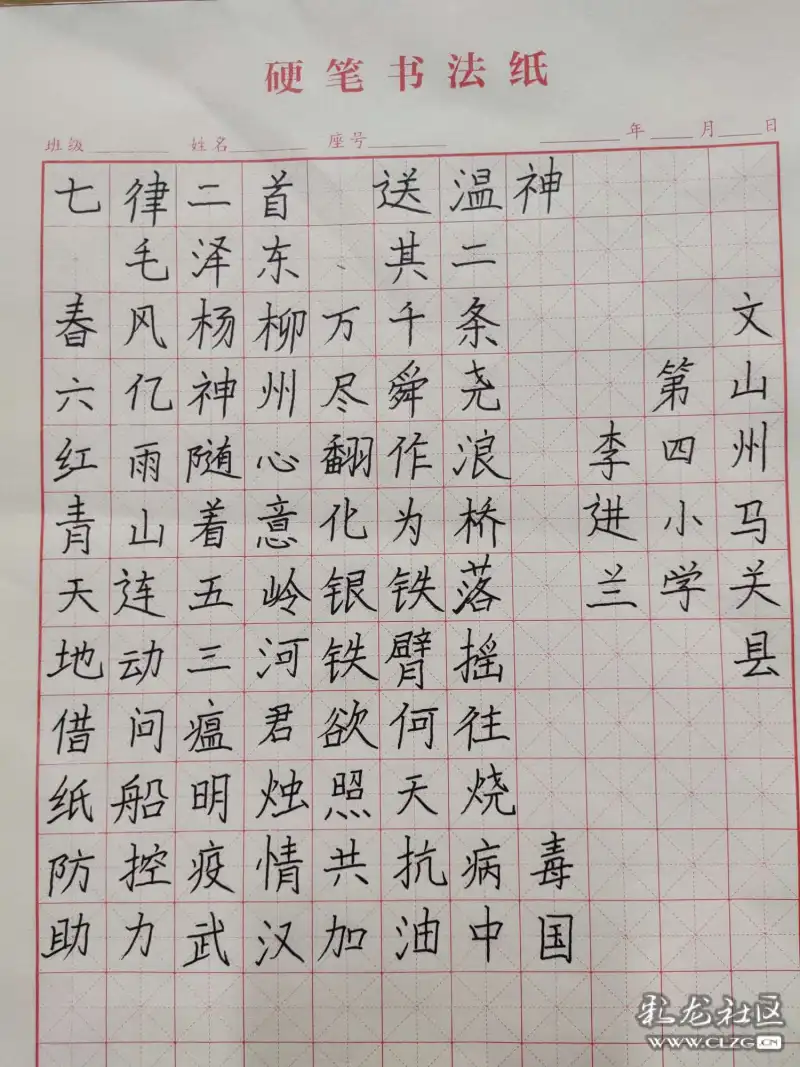 硬笔书法纸
班级 姓名 座号 年 月 日
七律二首 送温神
毛泽东、其二
春风杨柳万千条
六亿神州尽舜尧
红雨随心翻作浪
青山着意化为桥
天连五岭银铁落
地动三河铁臂摇
借问瘟君欲何往
纸船明烛照天烧
防控疫情共抗病毒
助力武汉加油中国
文山州马关县
第四小学
李进兰
彩龙社区
WWW.CLZG.CN